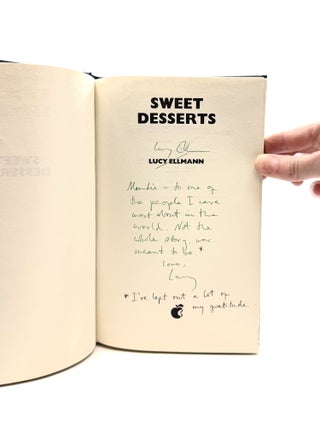 SWEET
DESSERTS
Lucy Ellmann
LUCY ELLMANN
– to one of
the people I care
most about in the
world. Not the
whole story, nor
meant to be. *
love,
Lucy
* I've left out a lot of
my gratitude.
SWEET
DESSERTS